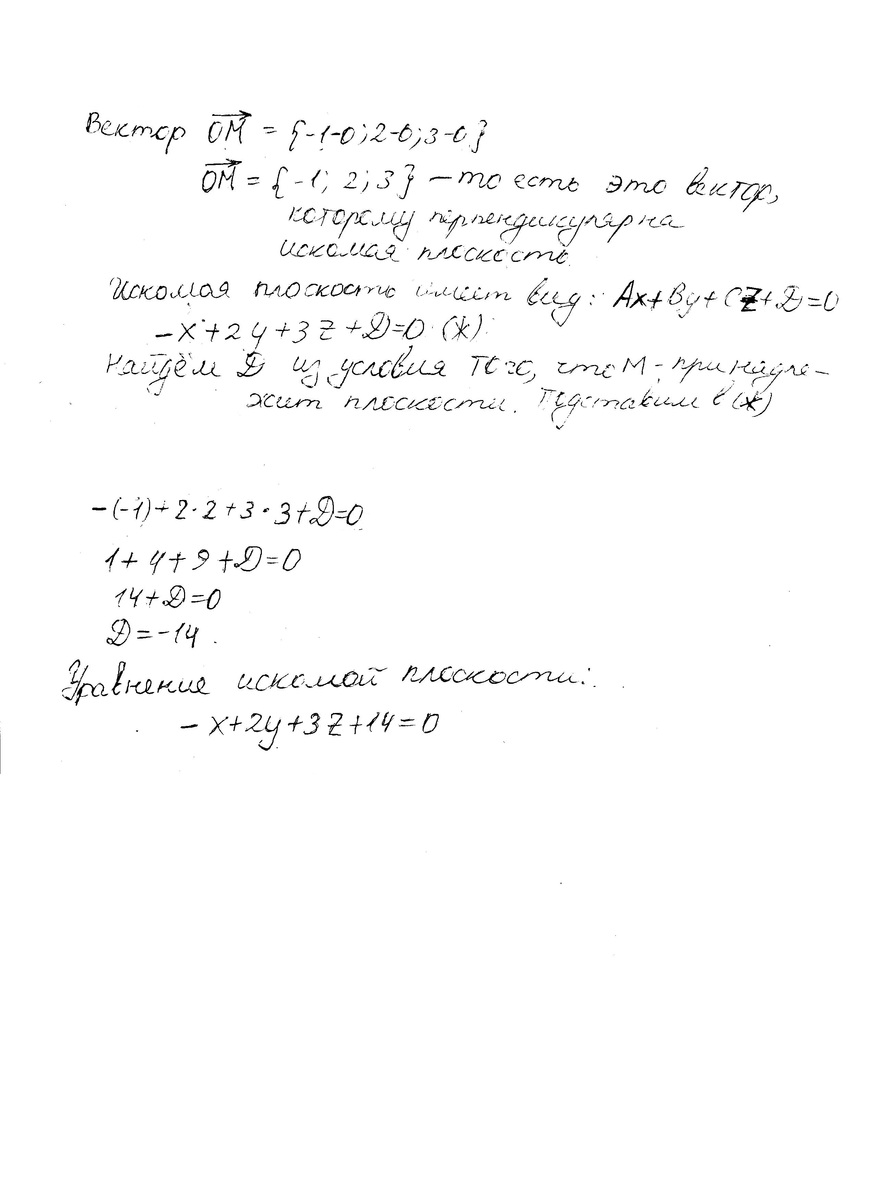 Вектор OM = {-1-0; 2-0; 3-0}
OM = {-1; 2; 3} – то есть это вектор,
которому перпендикулярна
искомая плоскость.
Искомая плоскость имеет вид: Ax+By+Cz+D=0
-x+2y+3z+D=0 (*)
Найдём D из условия того, что M - принадле-
жит плоскости. Подставим в (*)
-(-1)+2·2+3·3+D=0
1+4+9+D=0
14+D=0
D=-14.
Уравнение искомой плоскости:
-x+2y+3z+14=0